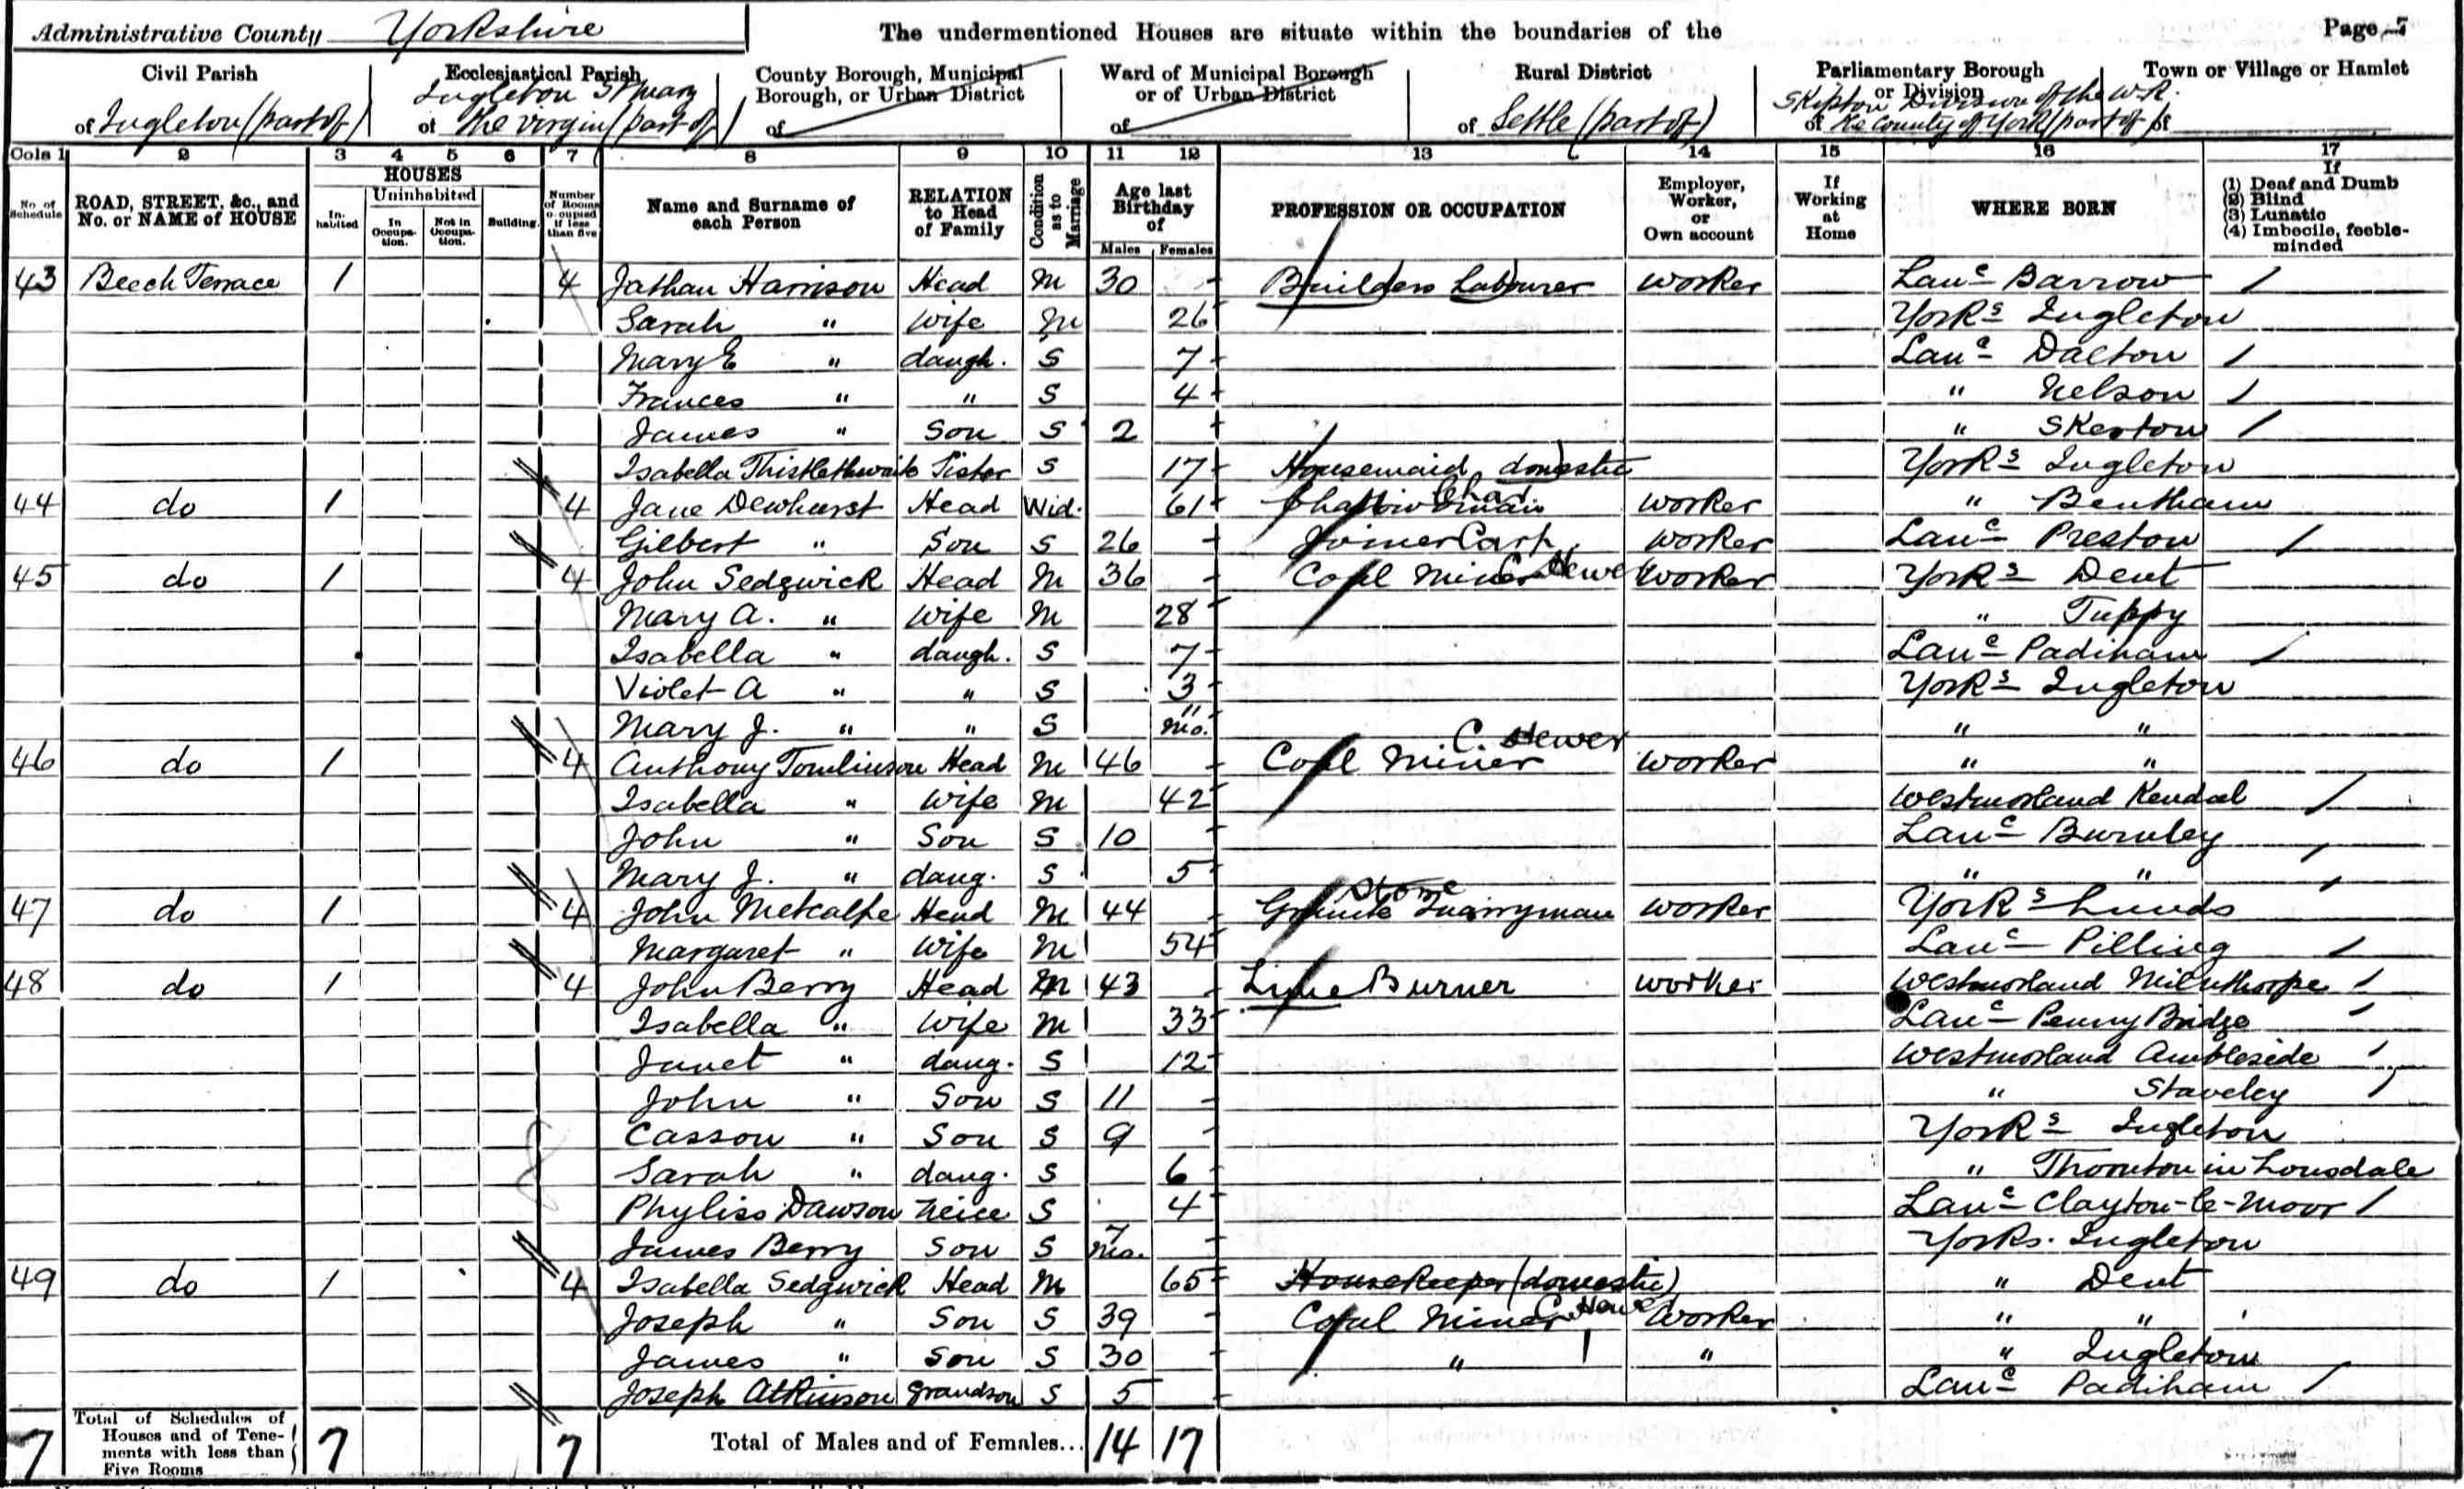 Administrative County Yorkshire The undermentioned Houses are situate within the boundaries of the Page 5
Civil Parish Ecclesiastical Parish County Borough, Municipal Ward of Municipal Borough Rural District Parliamentary Borough Town or Village or Hamlet
Borough, or Urban District or of Urban District or Division
of Ingleton (part of) of Ingleton St Mary the virgin (part of) of of of Settle (part of) of Skipton Division of the W.R. the County of York (part of) of
Cols 1 2 3 4 5 6 7 8 9 10 11 12 13 14 15 16 17
No. of Schedule ROAD, STREET, &c., and No. or NAME of HOUSE HOUSES Inhabited Uninhabited In Occupation. Not in Occupation. Building. Number of Rooms occupied if less than five Name and Surname of each Person RELATION to Head of Family Condition as to Marriage Age last Birthday of Males Females PROFESSION OR OCCUPATION Employer, Worker, or Own account If Working at Home WHERE BORN If (1) Deaf and Dumb (2) Blind (3) Lunatic (4) Imbecile, feeble-minded
43 Beech Terrace 1 4 Jathan Harrison Head M 30 Builders Labourer worker Lanc Barrow
Sarah " wife M 26 Yorks Ingleton
Mary E " daugh. S 7 Lanc Dalton
Frances " " S 4 " Nelson
James " Son S 2 " Skerton
Isabella Thistlethwaite Sister S 17 Housemaid domestic Yorks Ingleton
44 do 1 4 Jane Dewhurst Head Wid. 61 Charwoman Char. worker " Bentham
Gilbert " Son S 26 Joiner Carp. worker Lanc Preston
45 do 1 4 John Sedgwick Head M 36 Coal Miner C. Hewer worker Yorks Dent
Mary A. " wife M 28 " Tuppy
Isabella " daugh. S 7 Lanc Padiham
Violet A " " S 3 Yorks Ingleton
Mary J. " " S 11 mo. " "
46 do 1 4 Anthony Tomlinson Head M 46 Coal Miner C. Hewer worker " "
Isabella " wife M 42 Westmorland Kendal
John " Son S 10 Lanc Burnley
Mary J. " daug. S 5 " "
47 do 1 4 John Metcalfe Head M 44 Granite Stone Quarryman worker Yorks Lunds
Margaret " wife M 54 Lanc Pilling
48 do 1 4 John Berry Head M 43 Lime Burner worker Westmorland Milnthorpe
Isabella " wife M 33 Lanc Penny Bridge
Janet " daug. S 12 Westmorland Ambleside
John " Son S 11 " Staveley
Casson " Son S 9 Yorks Ingleton
Sarah " daug. S 6 " Thornton in Lonsdale
Phyliss Dawson Neice S 4 Lanc Clayton-le-Moor
James Berry Son S 7 mo. Yorks. Ingleton
49 do 1 4 Isabella Sedgwick Head M 65 Housekeeper (domestic) " Dent
Joseph " Son S 39 Coal Miner C. Hewer Worker " "
James " Son S 30 " " " Ingleton
Joseph Atkinson Grandson S 5 Lanc Padiham
7 Total of Schedules of Houses and of Tenements with less than Five Rooms 7 7 Total of Males and of Females... 14 17